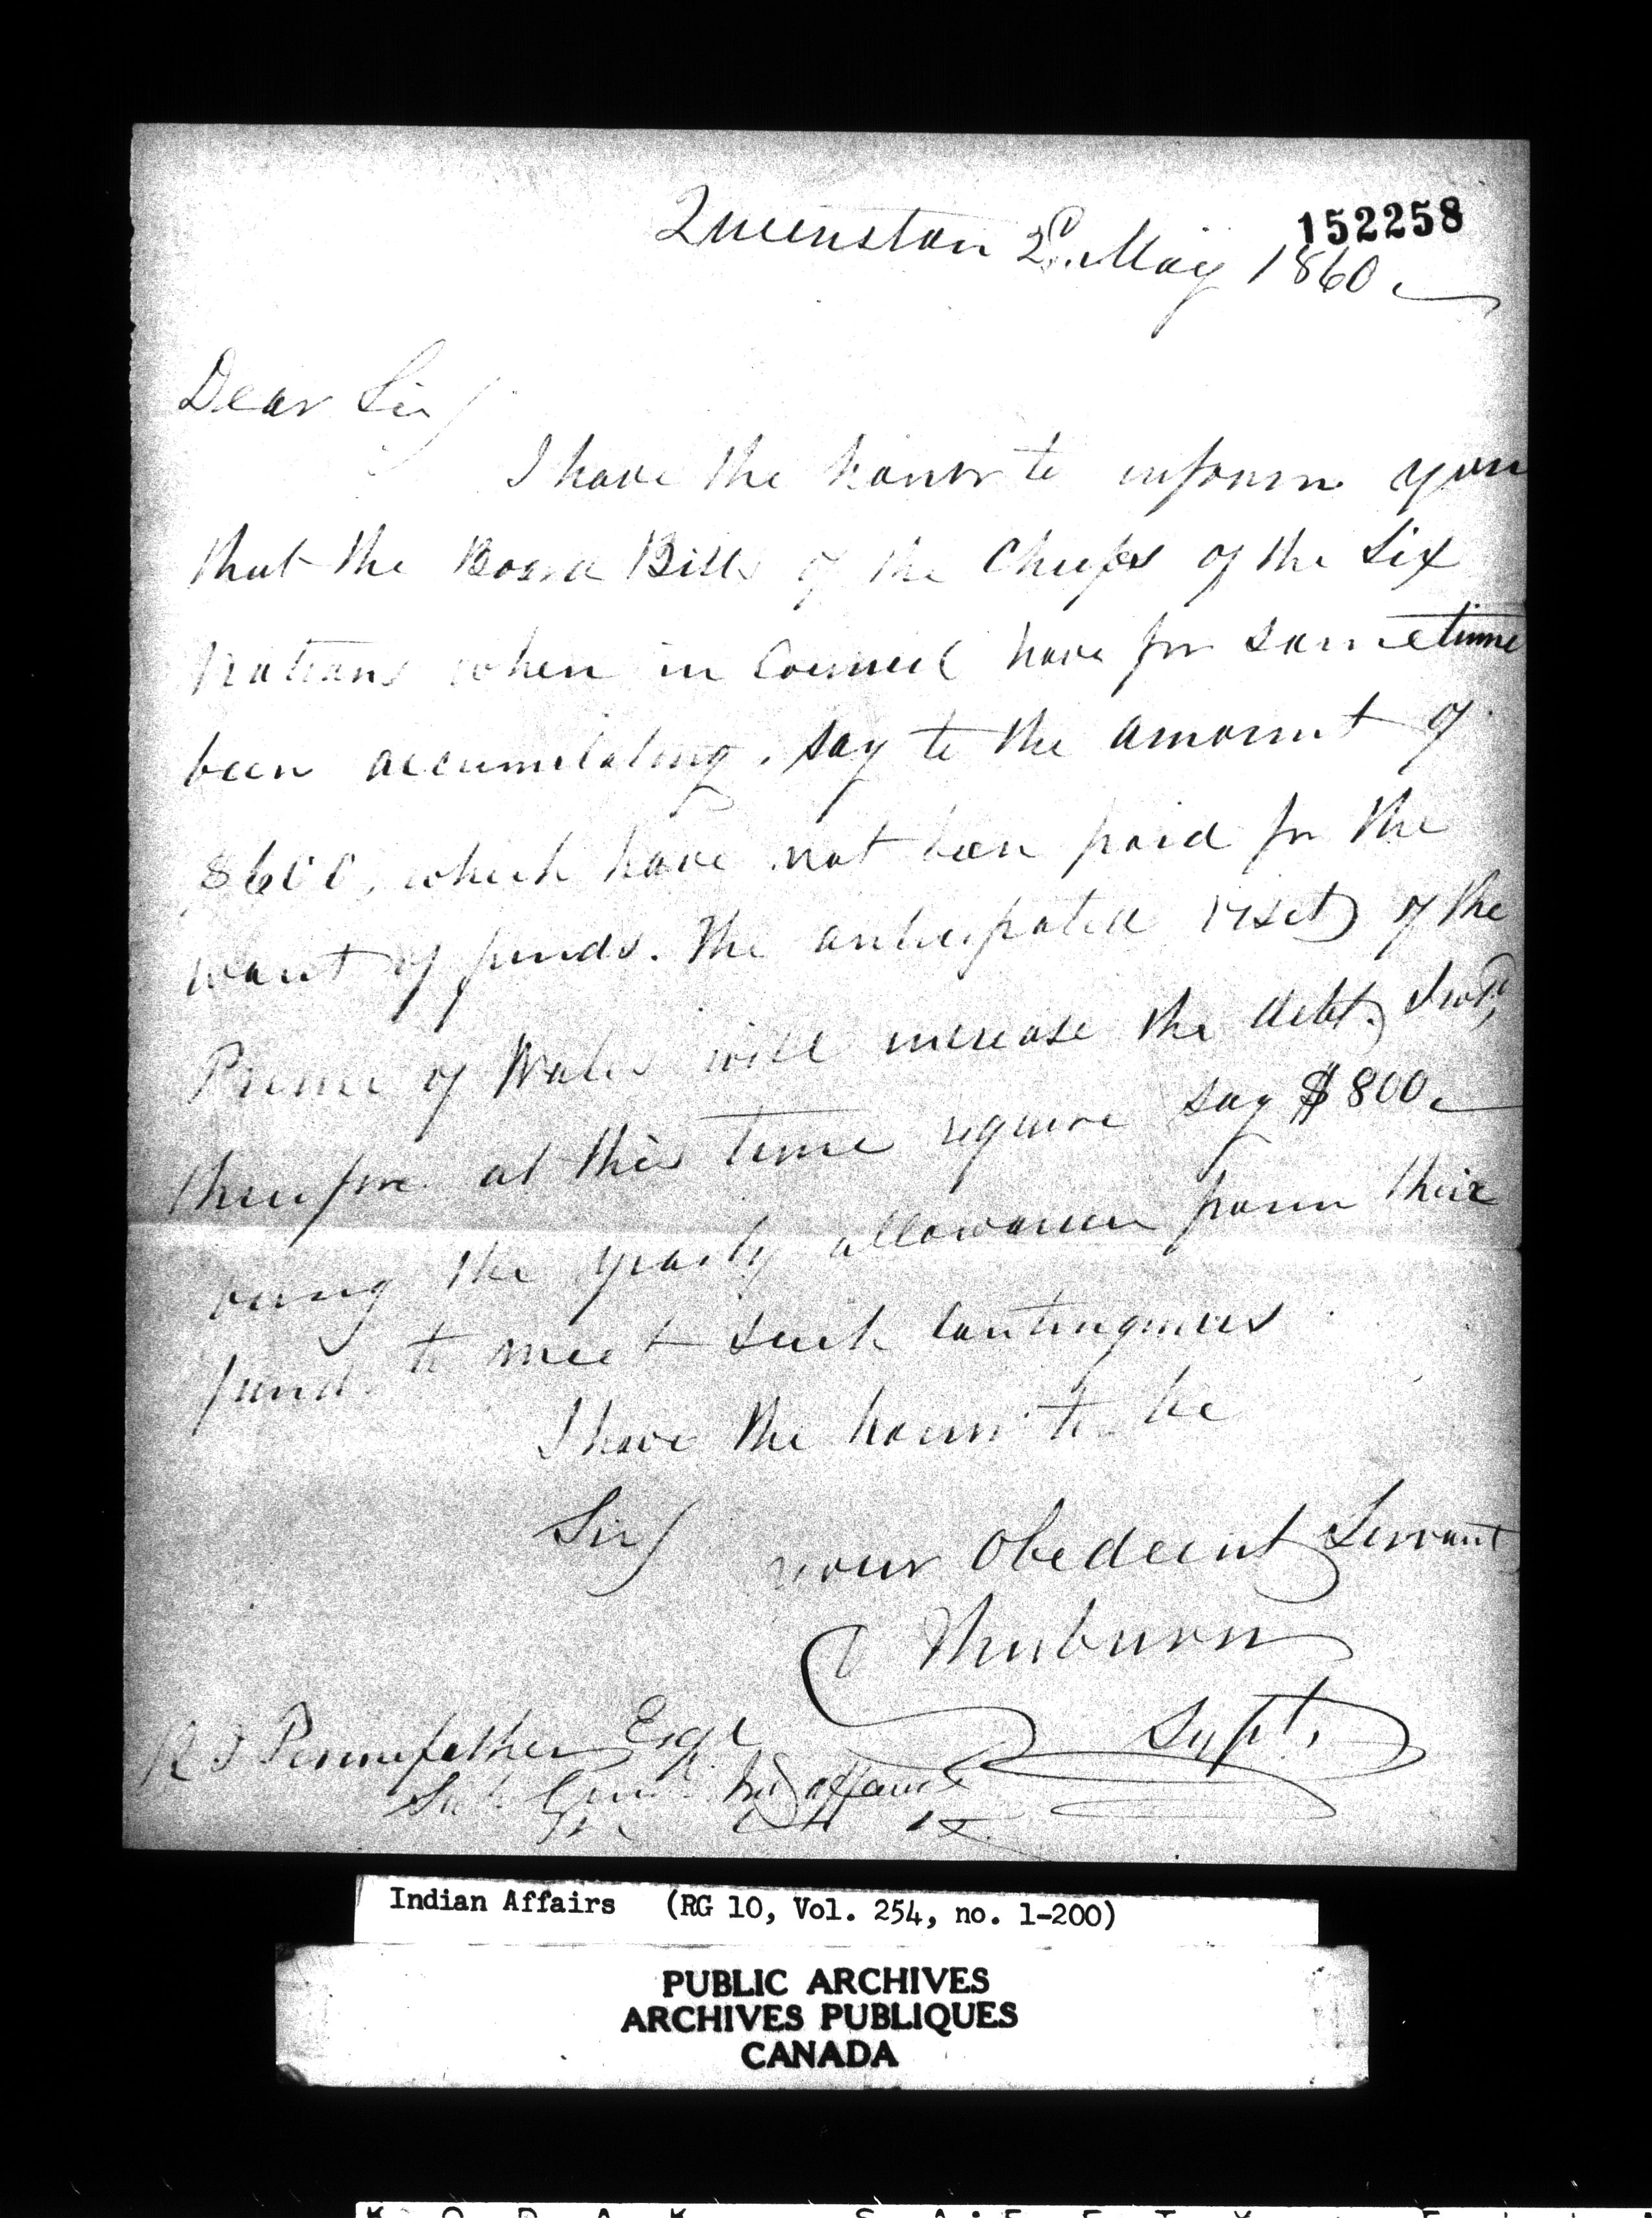 152258
Queenston 2d. May 1860
Dear Sir/
I have the honor to inform you
that the Board Bills of the Chiefs of the Six
Nations when in Council have for sometime
been accumulating, say to the amount of
$600, which have not been paid for the
want of funds. The anticipated visit of the
Prince of Wales will increase the debt, I wd,
therefore at this time require say $800
being the yearly allowance from their
fund to meet such contingencies
I have the honor to be
Sir/ your Obedient Servant
D Thorburn
Supt.
R T Pennefather Esqr
Supt Genl Ind Affairs
Indian Affairs (RG 10, Vol. 254, no. 1-200)
PUBLIC ARCHIVES
ARCHIVES PUBLIQUES
CANADA